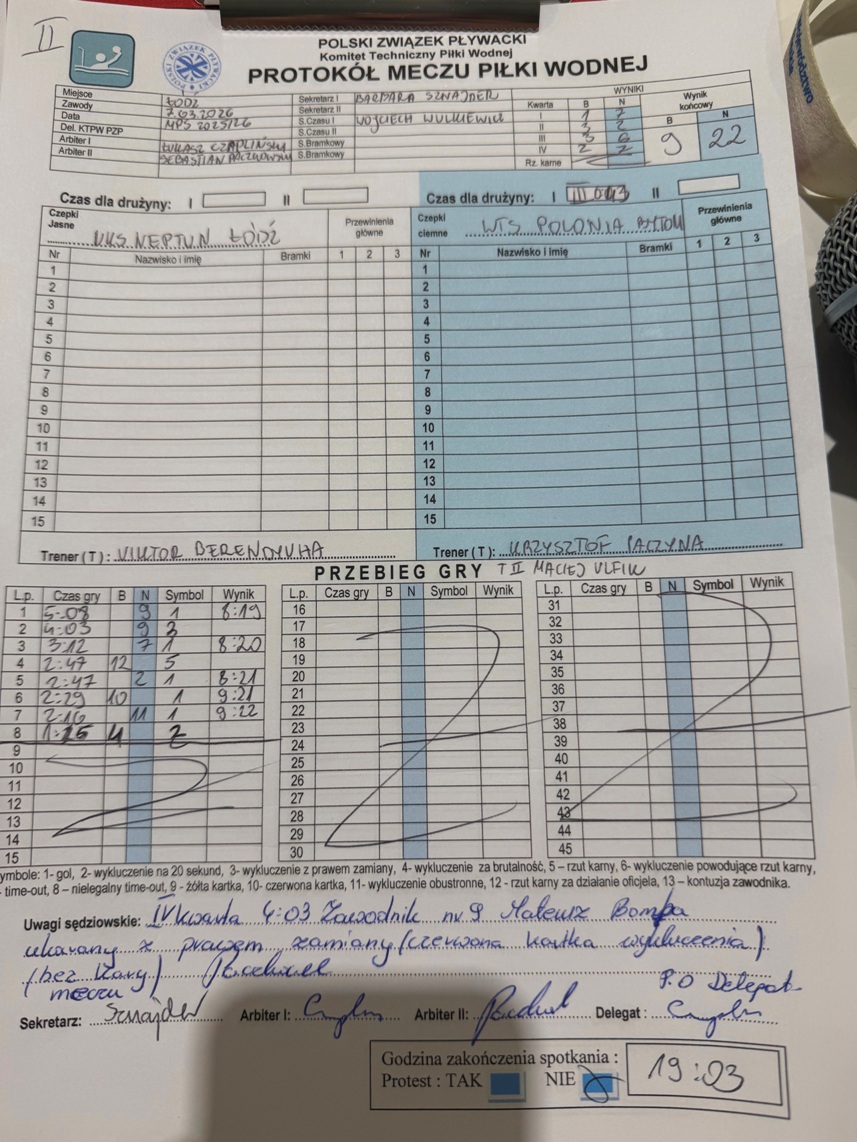 II
POLSKI ZWIĄZEK PŁYWACKI
Komitet Techniczny Piłki Wodnej
PROTOKÓŁ MECZU PIŁKI WODNEJ
POLSKI ZWIĄZEK PŁYWACKI
Miejsce ŁÓDŹ Sekretarz I BARBARA SZNAJDER
Zawody Sekretarz II
Data 7.03.2026 S.Czasu I WOJCIECH WULKIEWICZ
Del. KTPW PZP MPS 2025/26 S.Czasu II
Arbiter I ŁUKASZ CZAPLIŃSKI S.Bramkowy
Arbiter II SEBASTIAN S.Bramkowy
WYNIKI
Kwarta B N
I 1 7
II
III 3 6
IV 2 2
Rz. karne
Wynik końcowy
B N
9 22
Czas dla drużyny: I II
Czepki Jasne UKS NEPTUN ŁÓDŹ Przewinienia główne
Nr Nazwisko i imię Bramki 1 2 3
1
2
3
4
5
6
7
8
9
10
11
12
13
14
15
Trener ( T ) : VIKTOR BERENDYUHA
Czas dla drużyny: I III 0:43 II
Czepki ciemne WTS POLONIA BYTOM Przewinienia główne
Nr Nazwisko i imię Bramki 1 2 3
1
2
3
4
5
6
7
8
9
10
11
12
13
14
15
Trener ( T ) : KRZYSZTOF PACZYNA
PRZEBIEG GRY T II MACIEJ ULFIK
L.p. Czas gry B N Symbol Wynik
1 5:08 9 1 8:19
2 4:03 9 3
3 3:12 7 1 8:20
4 2:47 12 5
5 2:47 2 1 8:21
6 2:29 10 1 9:21
7 2:16 11 1 9:22
8 1:25 4 2
9
10
11
12
13
14
15
L.p. Czas gry B N Symbol Wynik
16
17
18
19
20
21
22
23
24
25
26
27
28
29
30
L.p. Czas gry B N Symbol Wynik
31
32
33
34
35
36
37
38
39
40
41
42
43
44
45
ymbole: 1- gol, 2- wykluczenie na 20 sekund, 3- wykluczenie z prawem zamiany, 4- wykluczenie za brutalność, 5 – rzut karny, 6- wykluczenie powodujące rzut karny,
- time-out, 8 – nielegalny time-out, 9 - żółta kartka, 10- czerwona kartka, 11- wykluczenie obustronne, 12 - rzut karny za działanie oficjela, 13 – kontuzja zawodnika.
Uwagi sędziowskie: IV kwarta 4:03 Zawodnik nr 9 Mateusz Bompa
ukarany z prawem zamiany (czerwona kartka wykluczenia)
(bez kary)
meczu
P.O Delegat
Sekretarz: Sznajder Arbiter I: Arbiter II: Delegat :
Godzina zakończenia spotkania : 19:03
Protest : TAK NIE